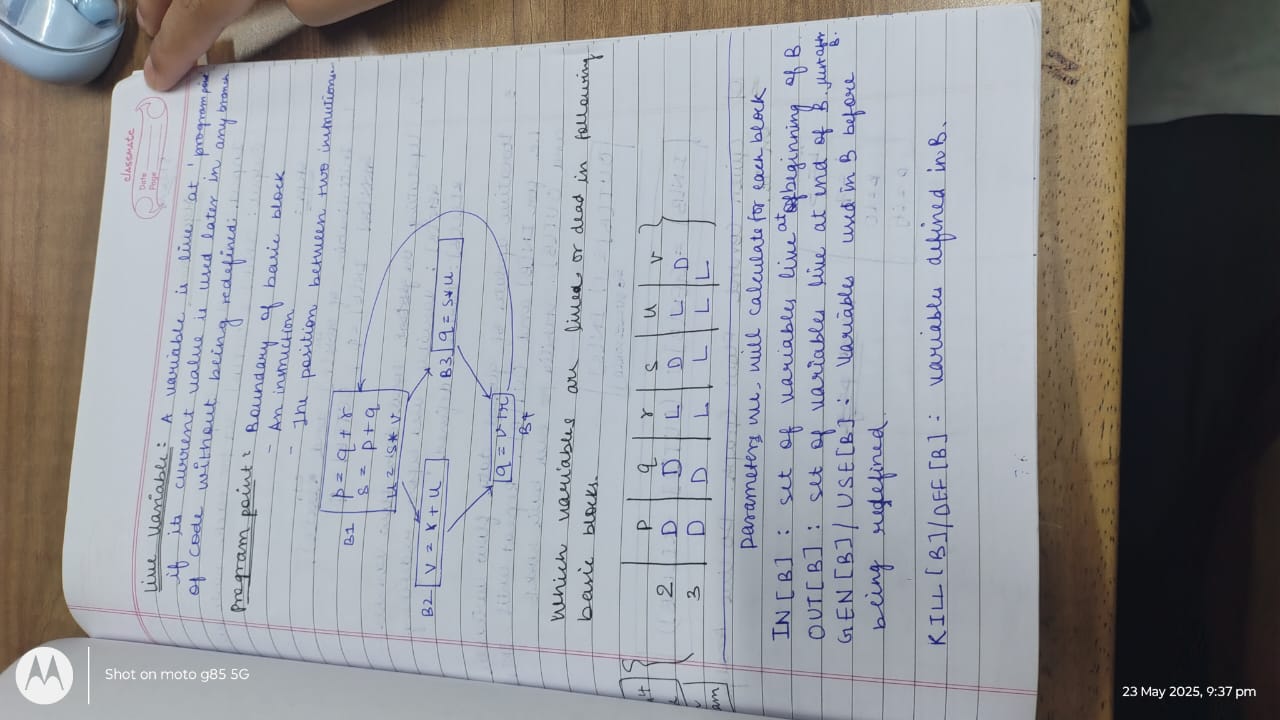 classmate
Date
Page
Live Variable: A variable is live at program point
if its current value is used later in any branch
of code without being redefined.
Program point: Boundary of basic block
- An instruction
- The position between two instructions
B1
p = q + r
s = p + q
u = s * v
B2 v = r + u
B3 q = s * u
q = v + r
B4
Which variables are lived or dead in following
basic blocks.
p q r s u v
2 D D L D L D
3 D D L L L L
am
Parameters we will calculate for each block
IN [B] : set of variables live at beginning of B
OUT [B] : set of variables live at end of B. just after B.
GEN [B] / USE [B] : Variables used in B before
being redefined.
KILL [B] / DEF [B] : variables defined in B.
Shot on moto g85 5G
23 May 2025, 9:37 pm